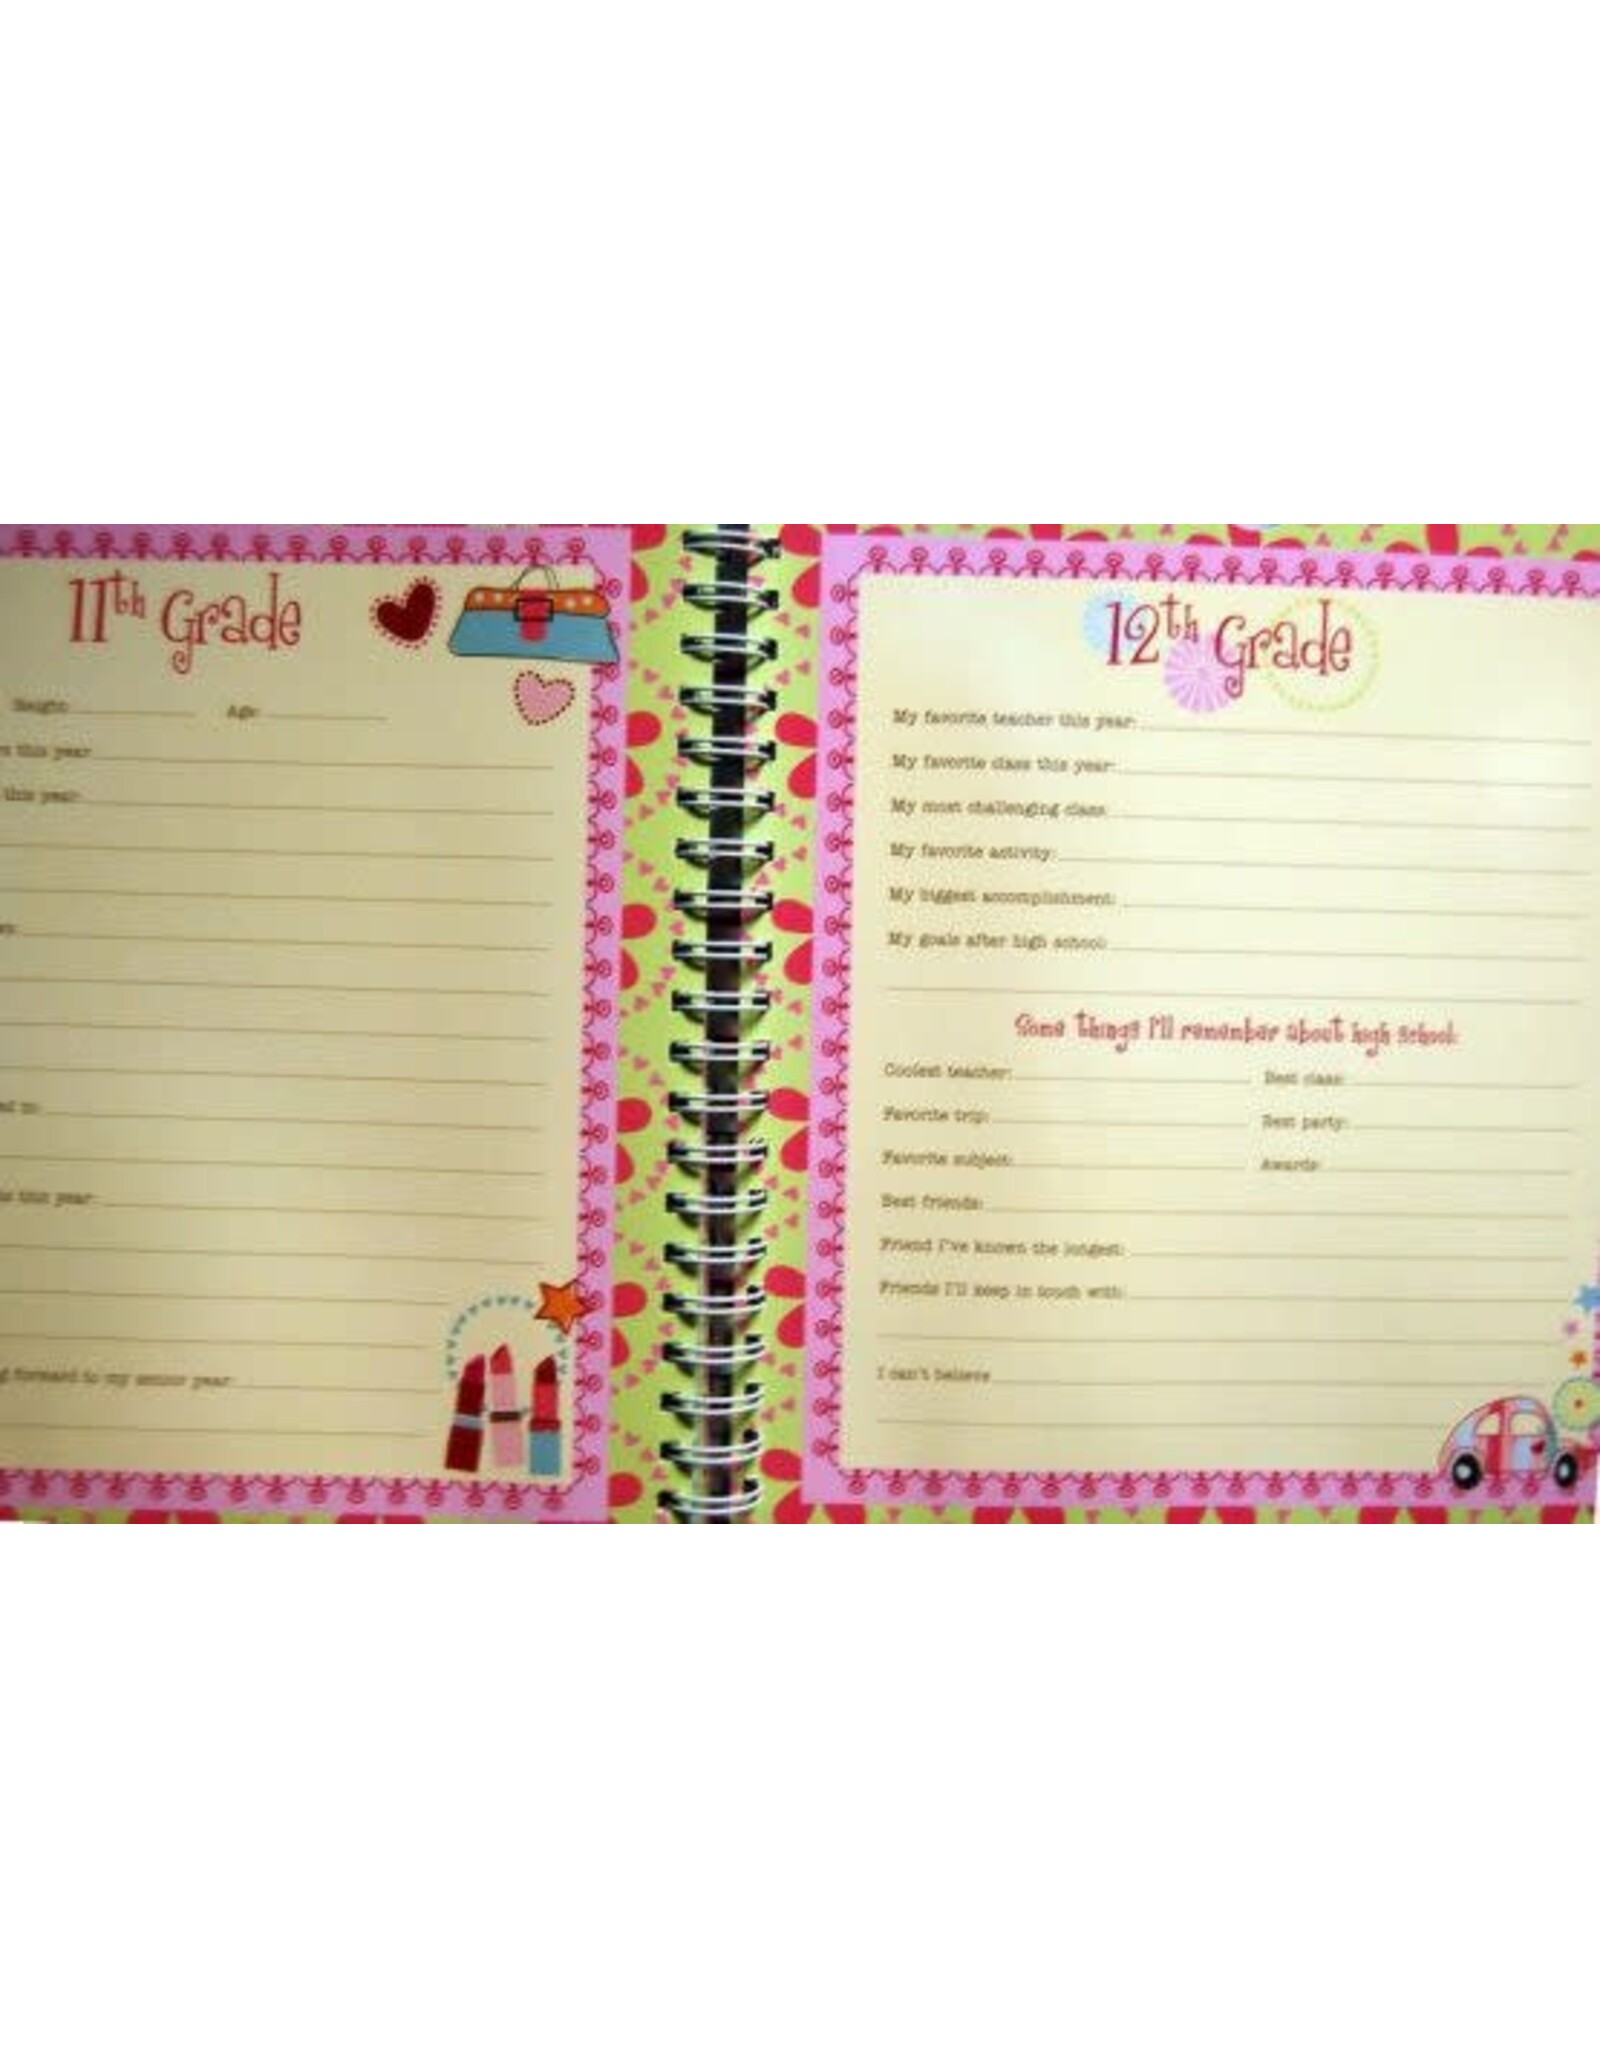 11th Grade
Height: Age:
this year
this year:
this year:
forward to my senior year:
12th Grade
My favorite teacher this year:
My favorite class this year:
My most challenging class:
My favorite activity:
My biggest accomplishment:
My goals after high school:
Some things I'll remember about high school:
Coolest teacher: Best class:
Favorite trip: Best party:
Favorite subject: Awards:
Best friends:
Friend I've known the longest:
Friends I'll keep in touch with:
I can't believe